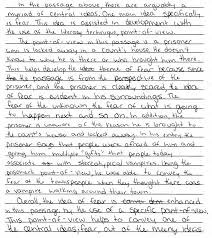 In the passage above, there are arguably a
myriad of central ideas. One main idea specifically
is fear. This idea is assisted in development with
the use of the literary technique, point-of-view.
The point-of-view in this passage is a prisoner
who is locked away in a Count's house he doesn't
know why he is there or who brought him there.
This helps develop the theme of fear because since
the passage is from the perspective of the
prisoner and the prisoner is clearly scared the idea
of fear is evident in his surroundings. The
fear of the unknown, the fear of what is going
to happen next and so on. In addition the
prisoner is unaware of the reason he is brought to
the count's house and locked away. In his entry the
prisoner says that people were afraid of him and
giving him multiple "gifts" that people today
associate with vampires. Using the
prisoner's point-of-view, he was able to convey the
fear of the townspeople when they thought there was
a vampire walking around their town.
Overall, the idea of fear is enhanced
in this passage by the use of a specific point-of-view.
This point-of-view helps to convey one of
the central ideas, fear, out of the many ideas.